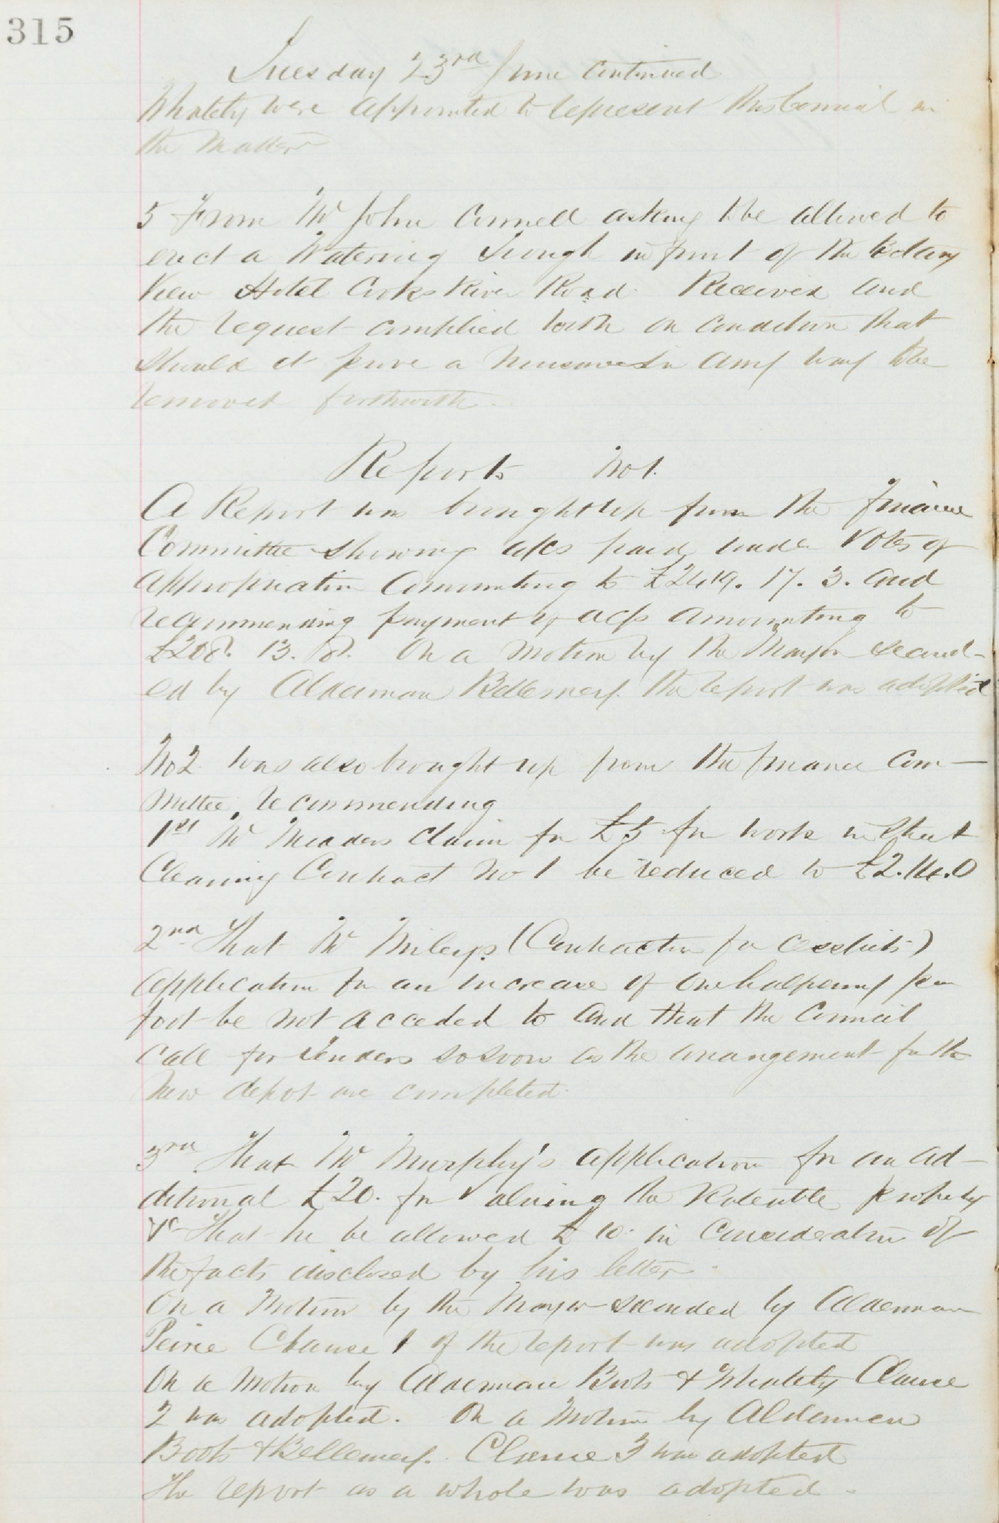 315
Tuesday 23rd June continued
Whately were appointed to represent this Council in
the matter
5 From Mr John Connell asking to be allowed to
erect a Watering Trough in front of the Botany
View Hotel Cooks River Road. Received and
the request complied with on condition that
should it prove a nuisance in any way to be
removed forthwith.
Reports No 1.
A Report was brought up from the Finance
Committee showing a/cs paid under Votes of
Appropriation amounting to £249. 17. 3. and
recommending payment of a/cs amounting to
£208. 13. 8. On a motion by the Mayor second-
ed by Alderman Bellemey. the report was adopted
No 2 was also brought up from the finance Com-
mittee, recommending
1st Mr Meaders Claim for £5 for work in Street
Cleaning Contract No 1 be reduced to £2.14.0
2nd That Mr Mileys (Contractor for Cesspits)
application for an increase of one halfpenny per
foot be not acceded to and that the Council
call for tenders so soon as the arrangement for the
new depot are completed.
3rd That Mr Murphy's application for an ad-
ditional £20. for Valuing the Rateable property
&c That he be allowed £10. in consideration of
the facts disclosed by his letter.
On a Motion by the Mayor seconded by Alderman
Peirie Clause 1 of the report was adopted
On a motion by Aldermen Boots & Whately Clause
2 was adopted. On a Motion by Aldermen
Boots & Bellemey. Clause 3 was adopted
The report as a whole was adopted.